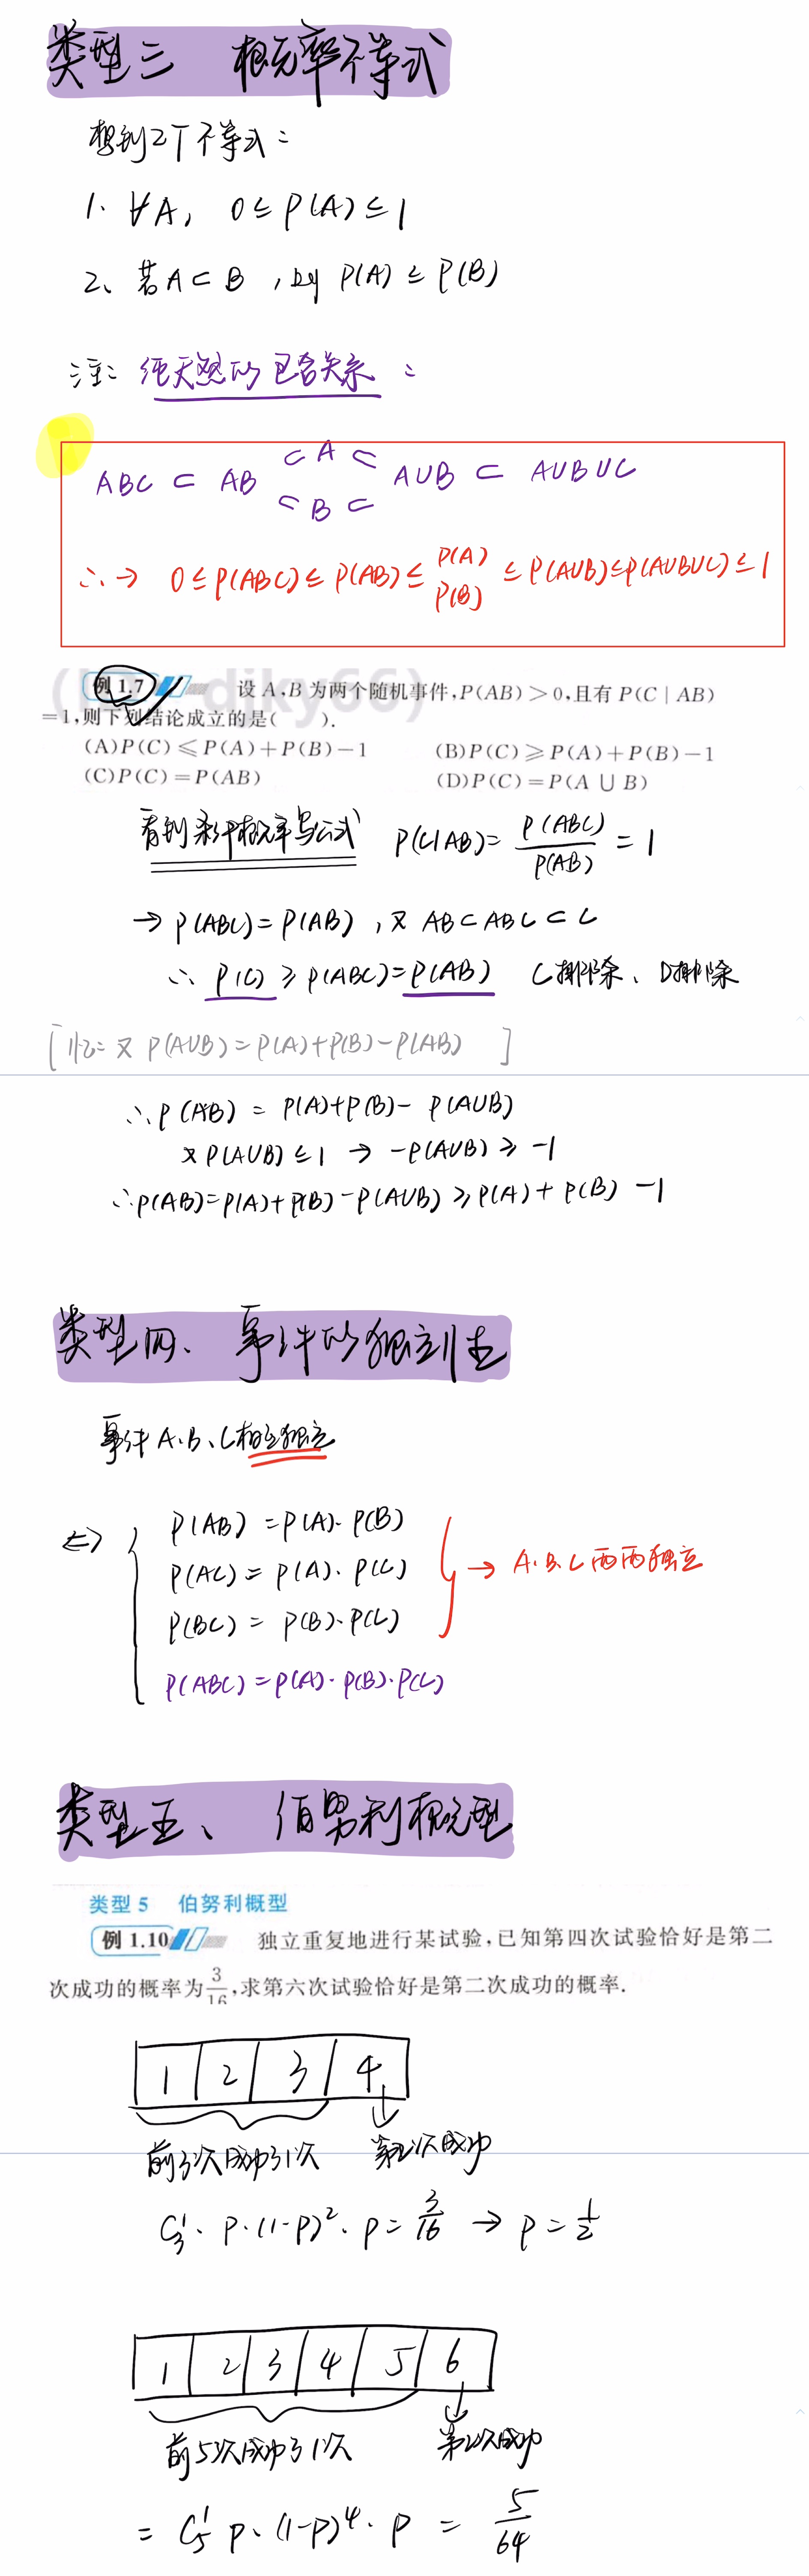 类型三 概率不等式
想到2个不等式:
1. ∀A, 0≤P(A)≤1
2、若A⊂B,则P(A)≤P(B)
注: 纯天然的包含关系:
ABC ⊂ AB ⊂A⊂ ⊂B⊂ AUB ⊂ AUBUC
∴→ 0≤P(ABC)≤P(AB)≤P(A) P(B)≤P(AUB)≤P(AUBUC)≤1
例 1.7 设 A,B 为两个随机事件,P(AB)>0,且有 P(C|AB)
=1,则下列结论成立的是( ).
(A)P(C)≤P(A)+P(B)-1 (B)P(C)≥P(A)+P(B)-1
(C)P(C)=P(AB) (D)P(C)=P(A∪B)
看到条件概率写公式 P(C|AB)=P(ABC)/P(AB)=1
→P(ABC)=P(AB),又AB⊂ABC⊂C
∴P(C)≥P(ABC)=P(AB) C排除、D排除
[忆:又P(AUB)=P(A)+P(B)-P(AB) ]
∴P(AB)=P(A)+P(B)-P(AUB)
又P(AUB)≤1 → -P(AUB)≥-1
∴P(AB)=P(A)+P(B)-P(AUB)≥P(A)+P(B)-1
类型四、事件的独立性
事件A.B、C相互独立
⇔ { P(AB)=P(A)·P(B)
P(AC)=P(A)·P(C) } → A.B.C两两独立
P(BC)=P(B)·P(C)
P(ABC)=P(A)·P(B)·P(C)
类型五、伯努利概型
类型 5 伯努利概型
例 1.10 独立重复地进行某试验,已知第四次试验恰好是第二
次成功的概率为3/16,求第六次试验恰好是第二次成功的概率.
1 2 3 4
前3次成功了1次 第2次成功
C₃¹·P·(1-P)²·P=3/16 → P=1/2
1 2 3 4 5 6
前5次成功了1次 第2次成功
= C₅¹ P·(1-P)⁴·P = 5/64